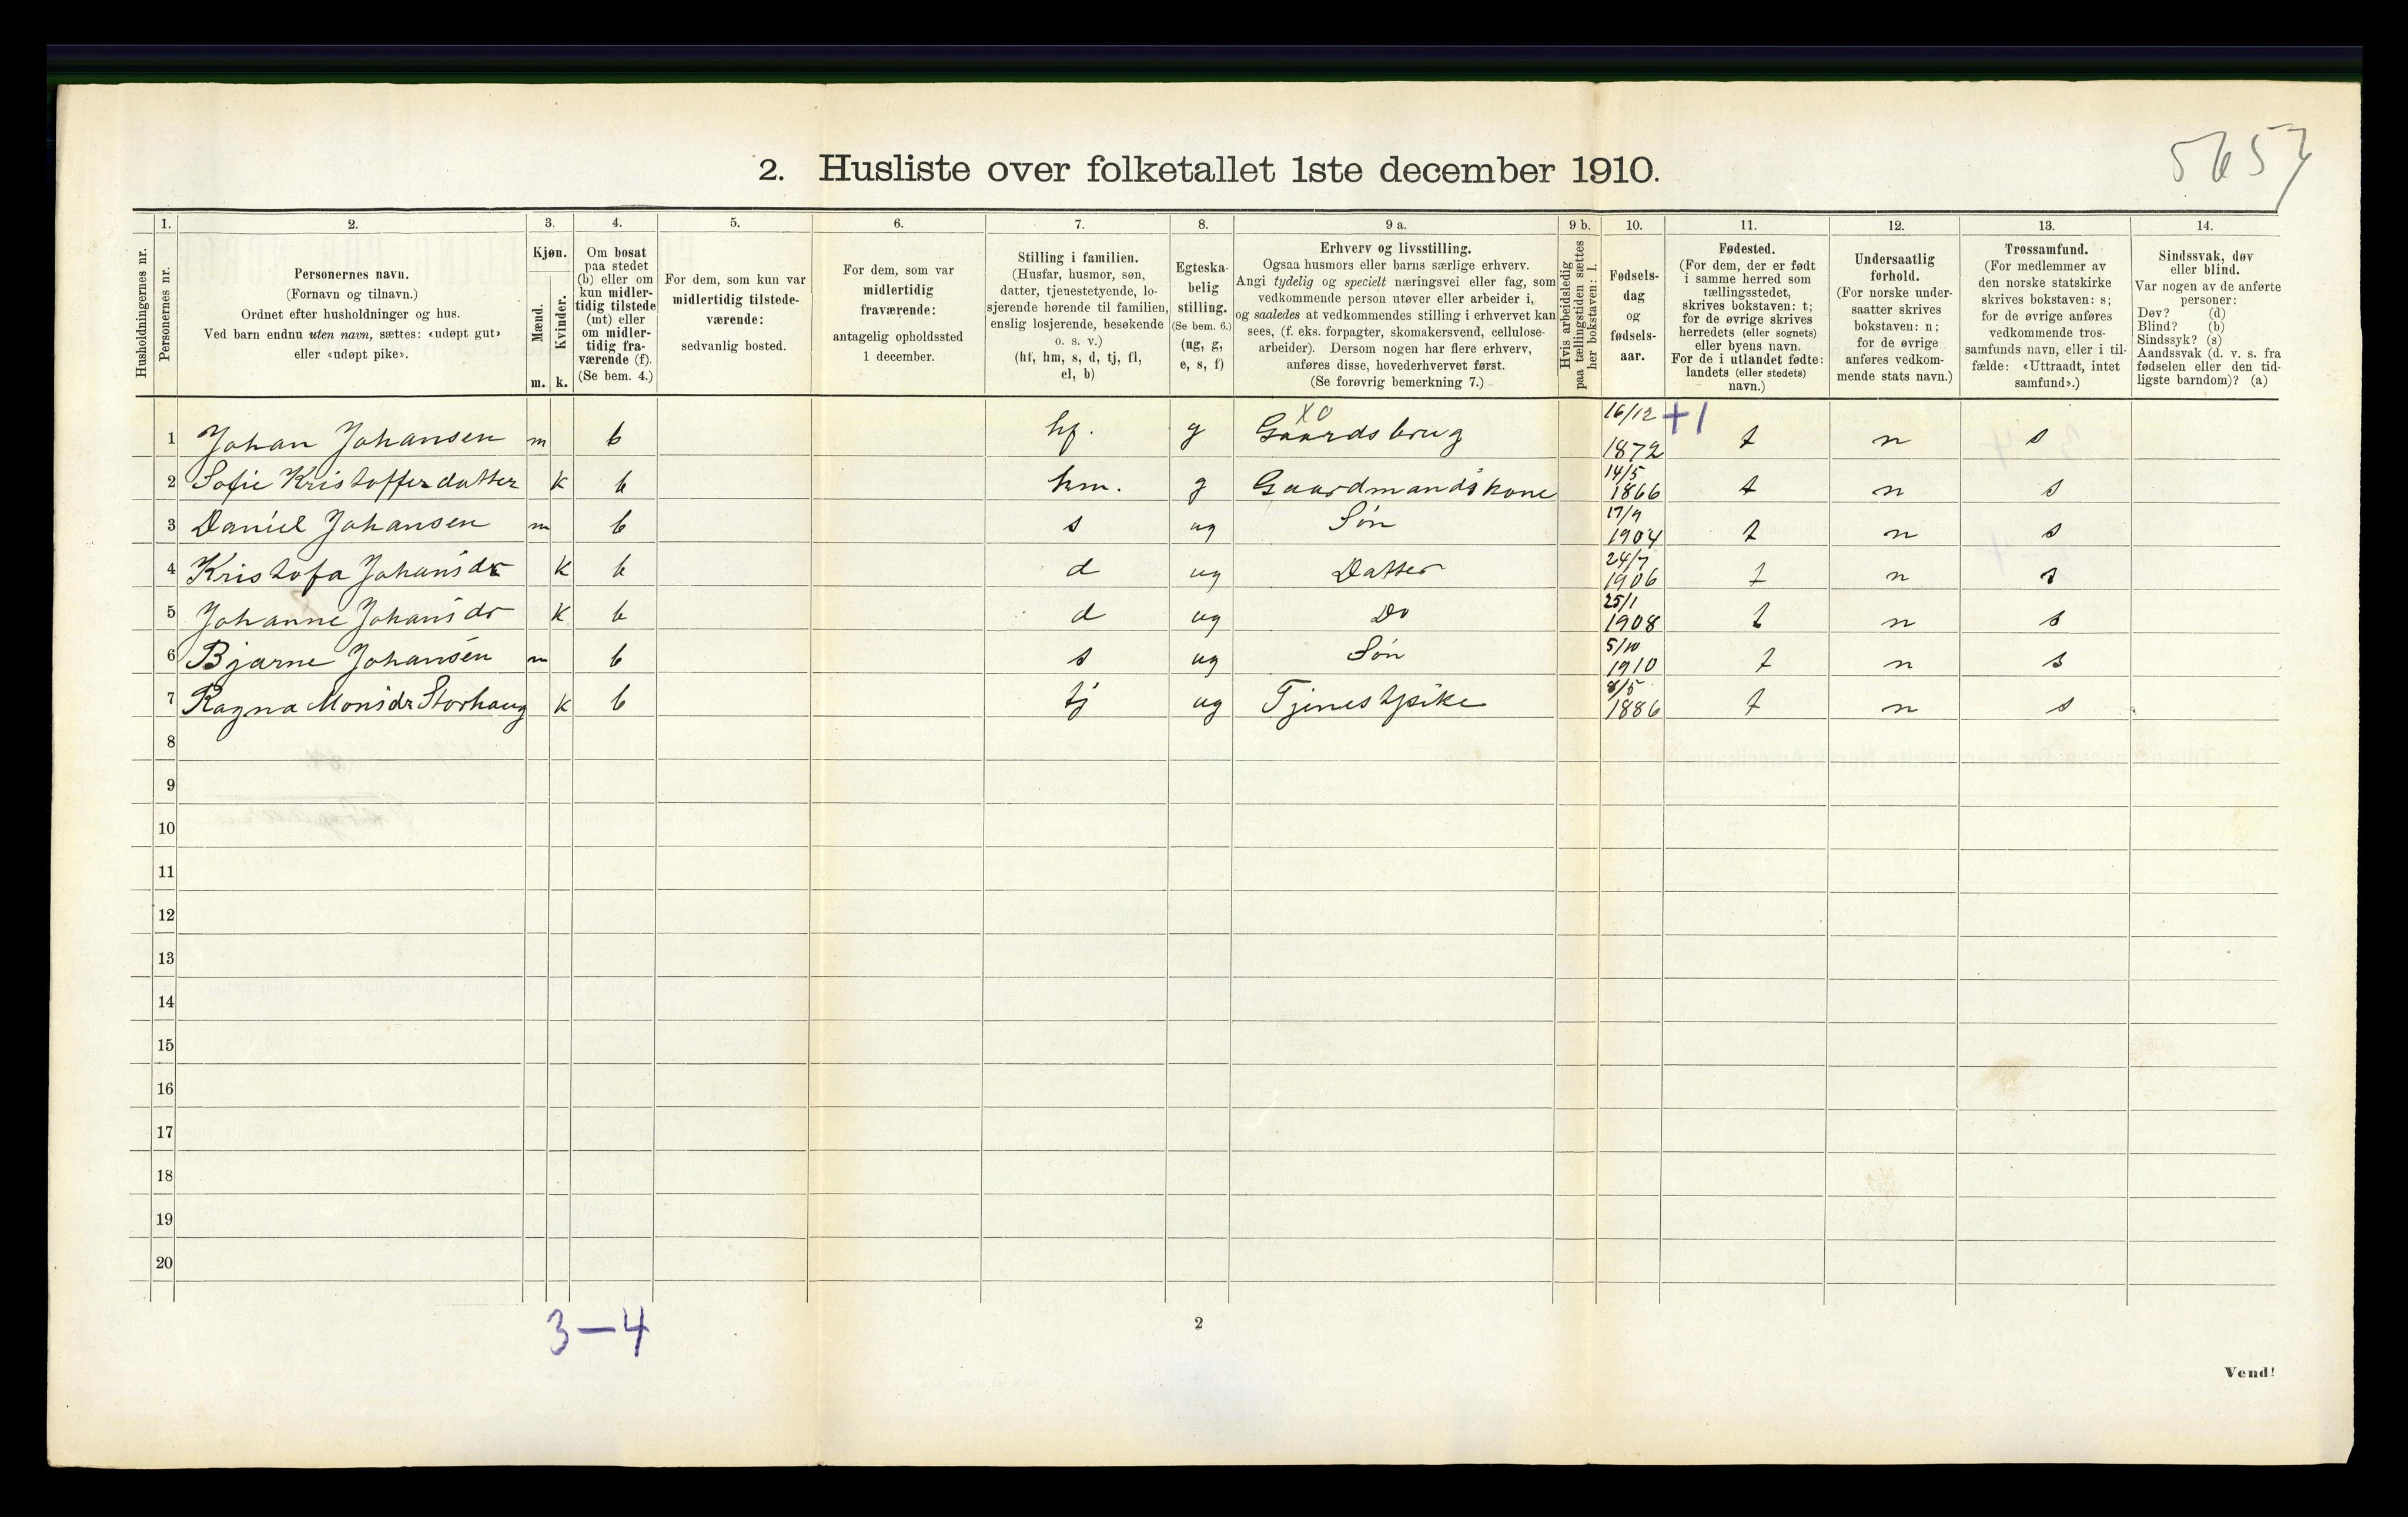 5657
2. Husliste over folketallet 1ste december 1910.
Husholdningernes nr.
1.
Personernes nr.
2.
Personernes navn.
(Fornavn og tilnavn.)
Ordnet efter husholdninger og hus.
Ved barn endnu uten navn, sættes: «udøpt gut»
eller «udøpt pike».
3.
Kjøn.
Mænd.
Kvinder.
m. k.
4.
Om bosat
paa stedet
(b) eller om
kun midler-
tidig tilstede
(mt) eller
om midler-
tidig fra-
værende (f).
(Se bem. 4.)
5.
For dem, som kun var
midlertidig tilstede-
værende:
sedvanlig bosted.
6.
For dem, som var
midlertidig
fraværende:
antagelig opholdssted
1 december.
7.
Stilling i familien.
(Husfar, husmor, søn,
datter, tjenestetyende, lo-
sjerende hørende til familien,
enslig losjerende, besøkende
o. s. v.)
(hf, hm, s, d, tj, fl,
el, b)
8.
Egteska-
belig
stilling.
(Se bem. 6.)
(ug, g,
e, s, f)
9 a.
Erhverv og livsstilling.
Ogsaa husmors eller barns særlige erhverv.
Angi tydelig og specielt næringsvei eller fag, som
vedkommende person utøver eller arbeider i,
og saaledes at vedkommendes stilling i erhvervet kan
sees, (f. eks. forpagter, skomakersvend, cellulose-
arbeider). Dersom nogen har flere erhverv,
anføres disse, hovederhvervet først.
(Se forøvrig bemerkning 7.)
9 b.
Hvis arbeidsledig
paa tællingstiden sættes
her bokstaven: l.
10.
Fødsels-
dag
og
fødsels-
aar.
11.
Fødested.
(For dem, der er født
i samme herred som
tællingsstedet,
skrives bokstaven: t;
for de øvrige skrives
herredets (eller sognets)
eller byens navn.
For de i utlandet fødte:
landets (eller stedets)
navn.)
12.
Undersaatlig
forhold.
(For norske under-
saatter skrives
bokstaven: n;
for de øvrige
anføres vedkom-
mende stats navn.)
13.
Trossamfund.
(For medlemmer av
den norske statskirke
skrives bokstaven: s;
for de øvrige anføres
vedkommende tros-
samfunds navn, eller i til-
fælde: «Uttraadt, intet
samfund».)
14.
Sindssvak, døv
eller blind.
Var nogen av de anførte
personer:
Døv? (d)
Blind? (b)
Sindssyk? (s)
Aandssvak (d. v. s. fra
fødselen eller den tid-
ligste barndom)? (a)
1 Johan Johansen m b hf. g XO Gaardsbrug 16/12 1872 +1 t n s
2 Sofie Kristofferdatter k b hm. g Gaardmandskone 14/5 1866 t n s
3 Daniel Johansen m b s ug Søn 17/9 1904 t n s
4 Kristofa Johansdr k b d ug Datter 24/7 1906 t n s
5 Johanne Johansdr k b d ug Do 25/1 1908 t n s
6 Bjarne Johansen m b s ug Søn 5/10 1910 t n s
7 Ragna Monsdr Storhaug k b tj ug Tjenestpike 8/5 1886 t n s
8
9
10
11
12
13
14
15
16
17
18
19
20
3—4
2
Vend!